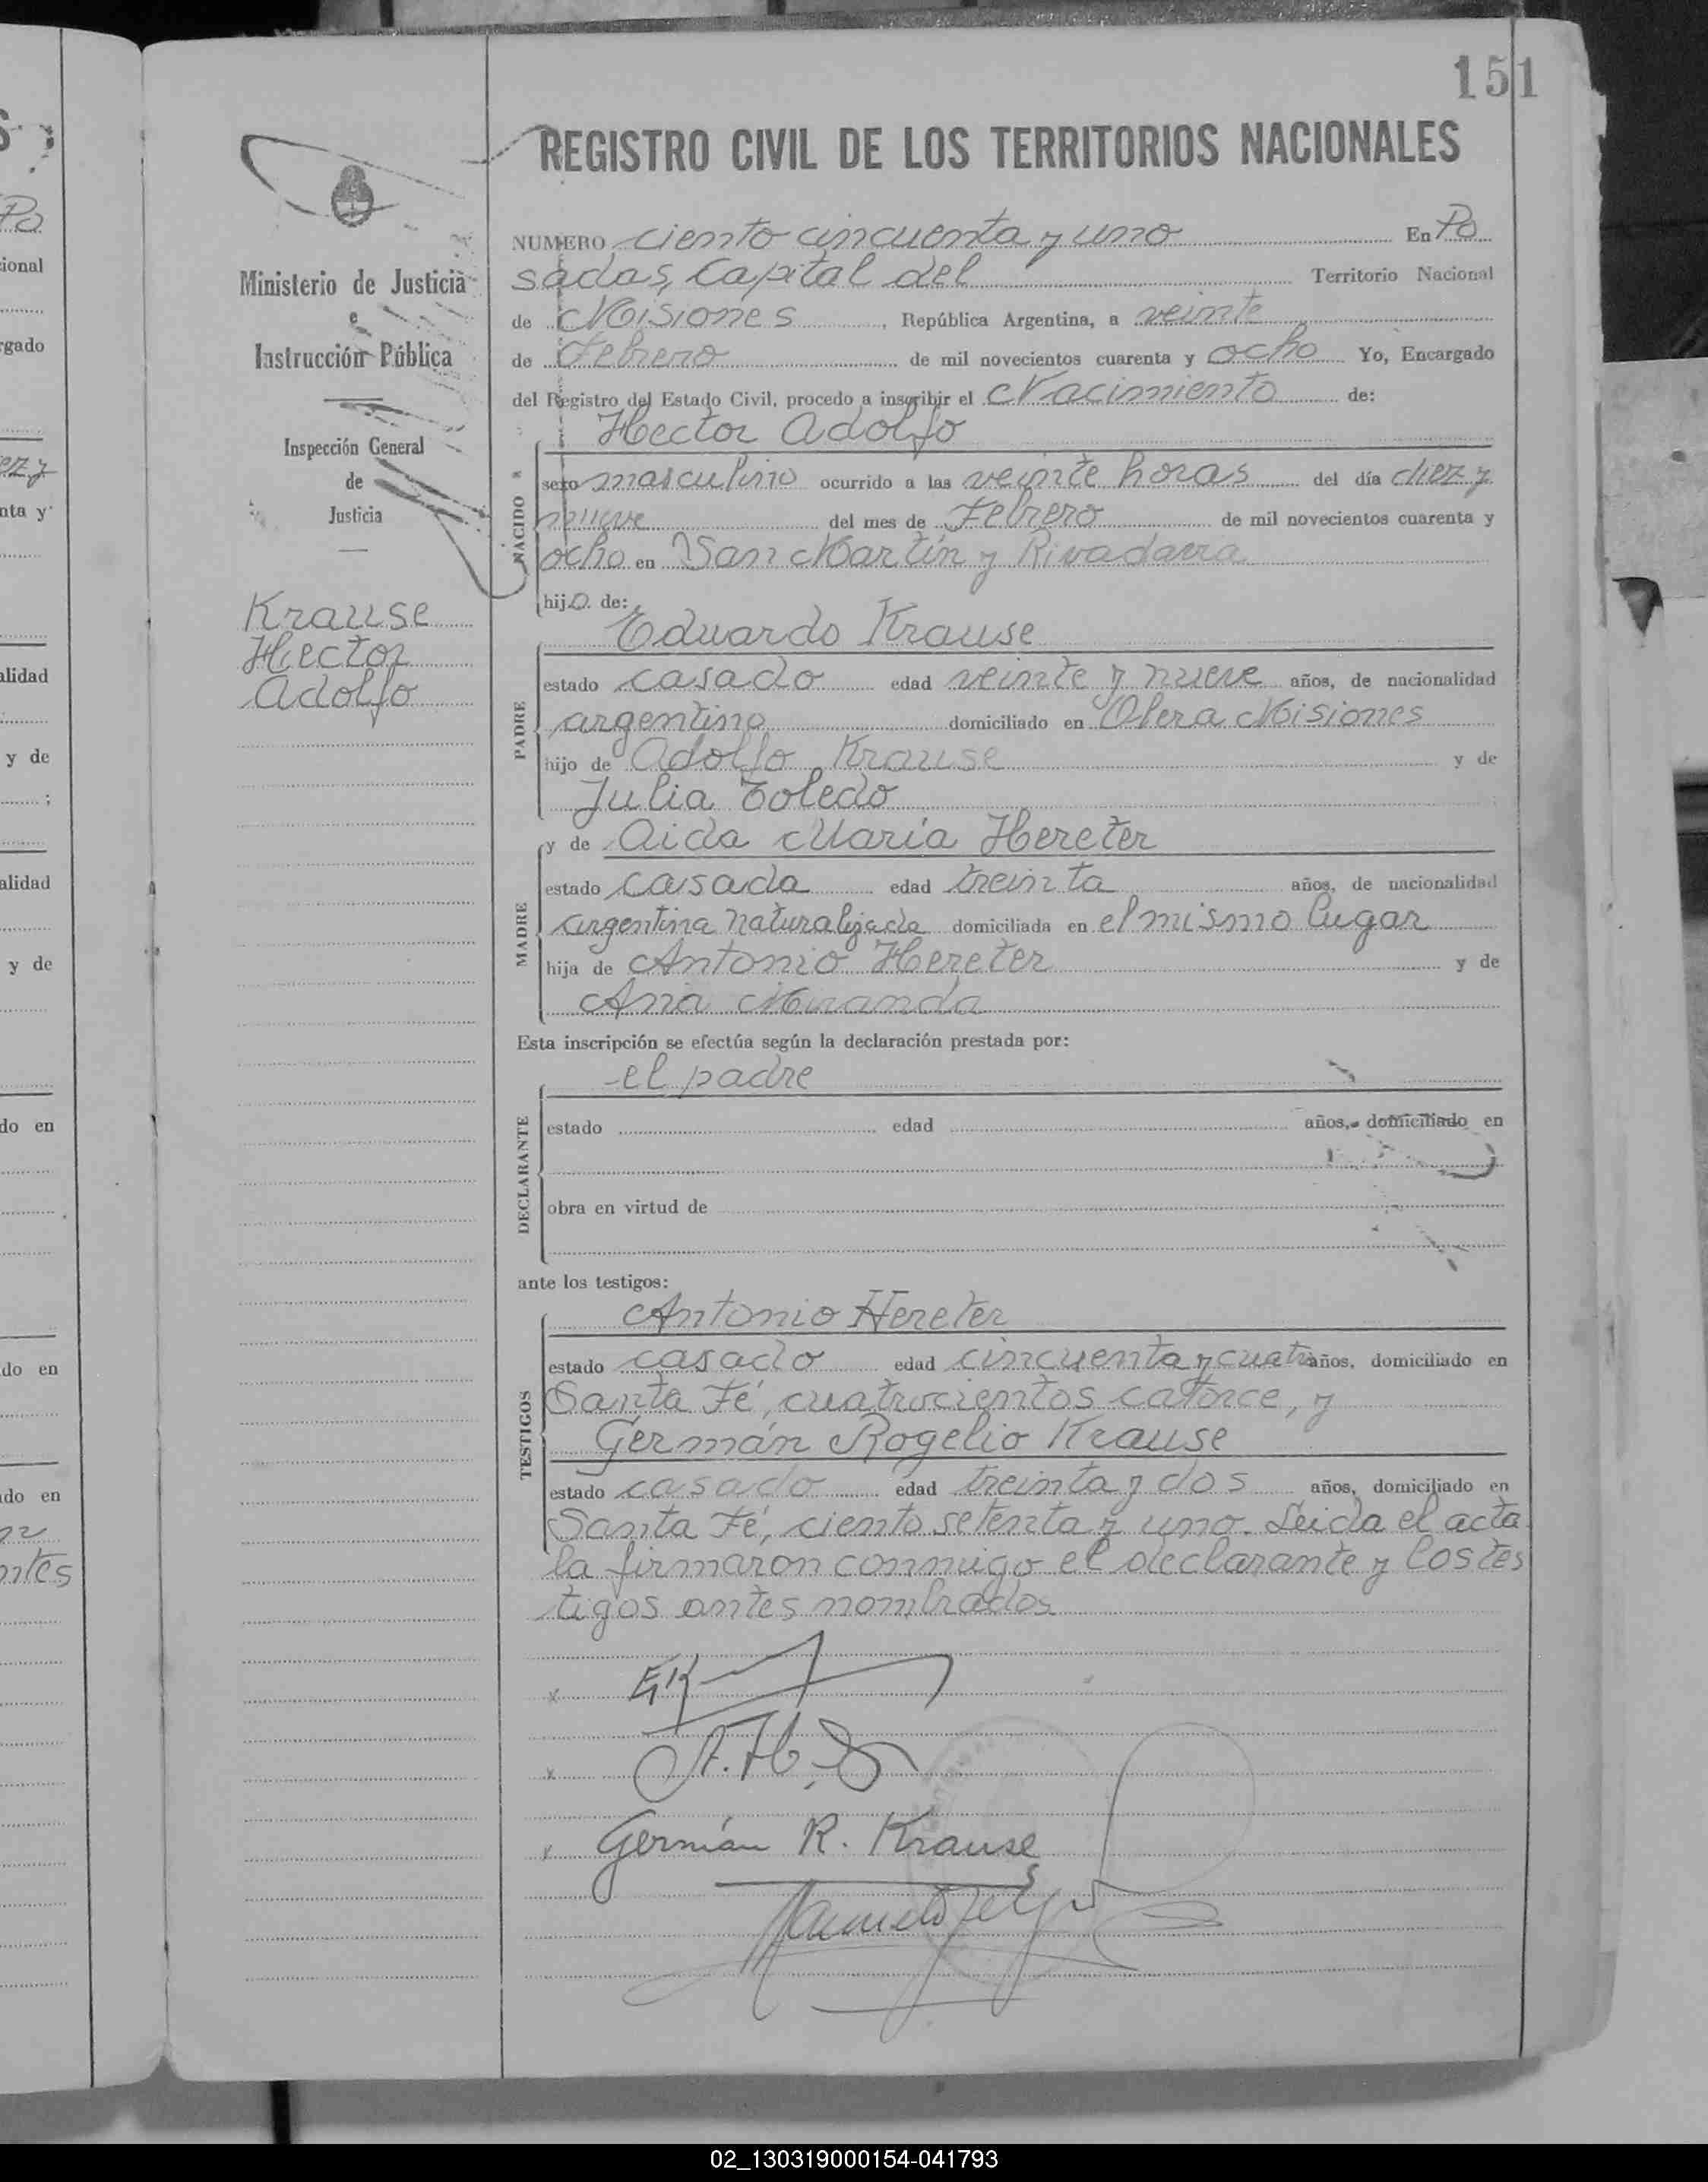 151
REGISTRO CIVIL DE LOS TERRITORIOS NACIONALES
Ministerio de Justicia
e
Instrucción Pública
Inspección General
de
Justicia
Krause
Hector
Adolfo
NUMERO ciento cincuenta y uno En Po
sadas, Capital del Territorio Nacional
de Misiones, República Argentina, a veinte
de Febrero de mil novecientos cuarenta y ocho Yo, Encargado
del Registro del Estado Civil, procedo a inscribir el Nacimiento de:
Hector Adolfo
NACIDO
sexo masculino ocurrido a las veinte horas del día diez y
nueve del mes de Febrero de mil novecientos cuarenta y
ocho en San Martín y Rivadavia
hijo de:
Eduardo Krause
PADRE
estado casado edad veinte y nueve años, de nacionalidad
argentino domiciliado en Obera Misiones
hijo de Adolfo Krause y de
Julia Toledo
y de Aida María Hereter
MADRE
estado casada edad treinta años, de nacionalidad
argentina naturalizada domiciliada en el mismo lugar
hija de Antonio Hereter y de
Ana Miranda
Esta inscripción se efectúa según la declaración prestada por:
el padre
DECLARANTE
estado edad años, domiciliado en
obra en virtud de
ante los testigos:
Antonio Hereter
TESTIGOS
estado casado edad cincuenta y cuatro años, domiciliado en
Santa Fé, cuatrocientos catorce, y
Germán Rogelio Krause
estado casado edad treinta y dos años, domiciliado en
Santa Fé, ciento setenta y uno. Leida el acta
la firmaron conmigo el declarante y los tes
tigos antes nombrados
EK
A. H.
Germán R. Krause
02_130319000154-041793